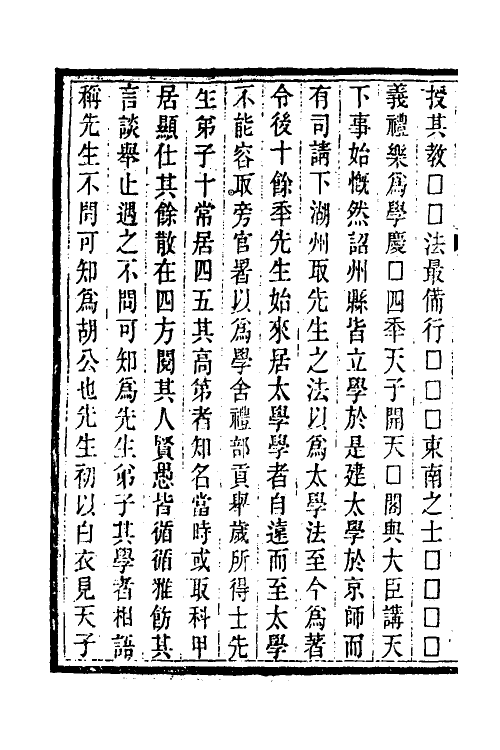 授其教□□法最備行□□□東南之士□□□□
義禮樂爲學慶□四秊天子開天□閣與大臣講天
下事始慨然詔州縣皆立學於是建太學於京師而
有司請下湖州取先生之法以爲太學法至今爲著
令後十餘秊先生始來居太學學者自遠而至太學
不能容取旁官署以爲學舍禮部貢舉歲所得士先
生弟子十常居四五其高第者知名當時或取科甲
居顯仕其餘散在四方閱其人賢愚皆循循雅飭其
言談舉止遇之不問可知爲先生弟子其學者相語
稱先生不問可知爲胡公也先生初以白衣見天子